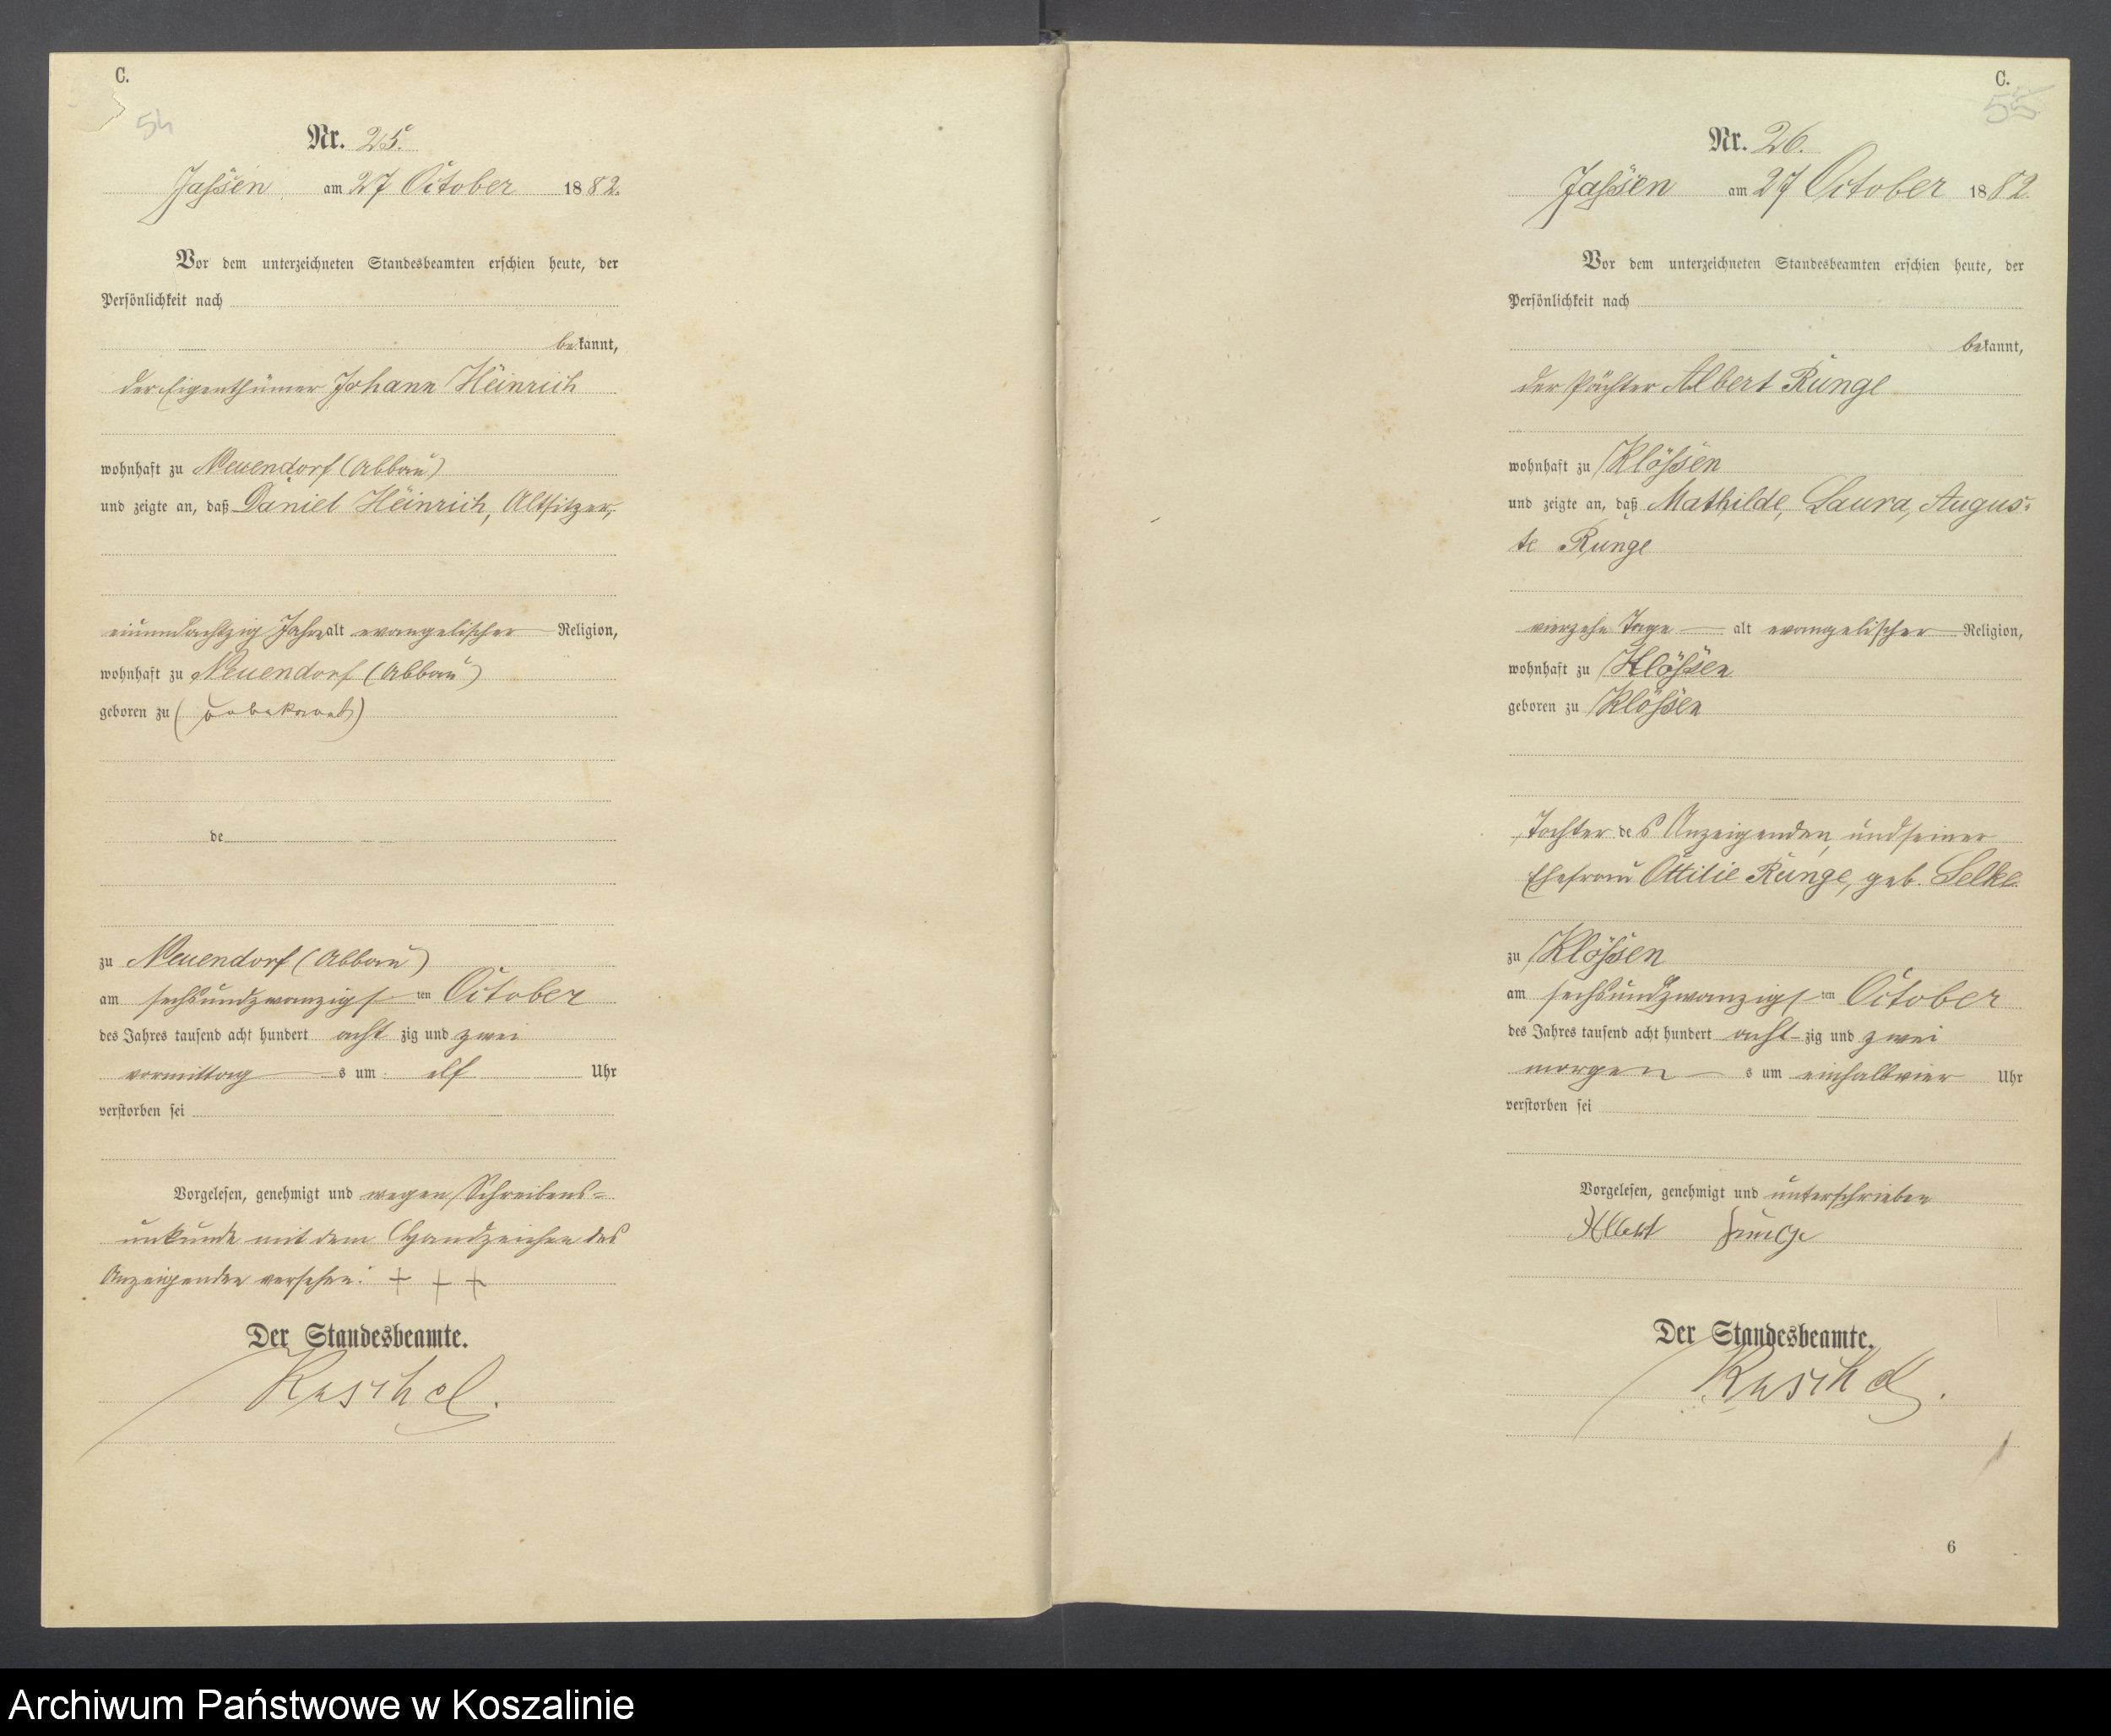 C.
54
Nr. 25.
Jassen am 27 October 1882.
Vor dem unterzeichneten Standesbeamten erschien heute, der
Persönlichkeit nach
bekannt,
der Eigenthümer Johann Heinrich
wohnhaft zu Neuendorf (Abbau)
und zeigte an, daß Daniel Heinrich, Altsitzer,
einundachtzig Jahre alt evangelischer Religion,
wohnhaft zu Neuendorf (Abbau)
geboren zu (unbekannt)
de
zu Neuendorf (Abbau)
am sechsundzwanzigsten October
des Jahres tausend acht hundert achtzig und zwei
vormittags um elf Uhr
verstorben sei
Vorgelesen, genehmigt und wegen Schreibens=
unkunde mit dem Handzeichen des
Anzeigenden versehen. + + +
Der Standesbeamte.
C.
55
Nr. 26.
Jassen am 27 October 1882
Vor dem unterzeichneten Standesbeamten erschien heute, der
Persönlichkeit nach
bekannt,
der Pächter Albert Runge
wohnhaft zu Klössen
und zeigte an, daß Mathilde, Laura, Augus=
te Runge
vierzehn Tage alt evangelischer Religion,
wohnhaft zu Klössen
geboren zu Klössen
Tochter des Anzeigenden und seiner
Ehefrau Ottilie Runge, geb. Selke
zu Klössen
am sechsundzwanzigsten October
des Jahres tausend acht hundert achtzig und zwei
morgens um einhalbvier Uhr
verstorben sei
Vorgelesen, genehmigt und unterschrieben
Albert Runge
Der Standesbeamte.
6
Archiwum Państwowe w Koszalinie